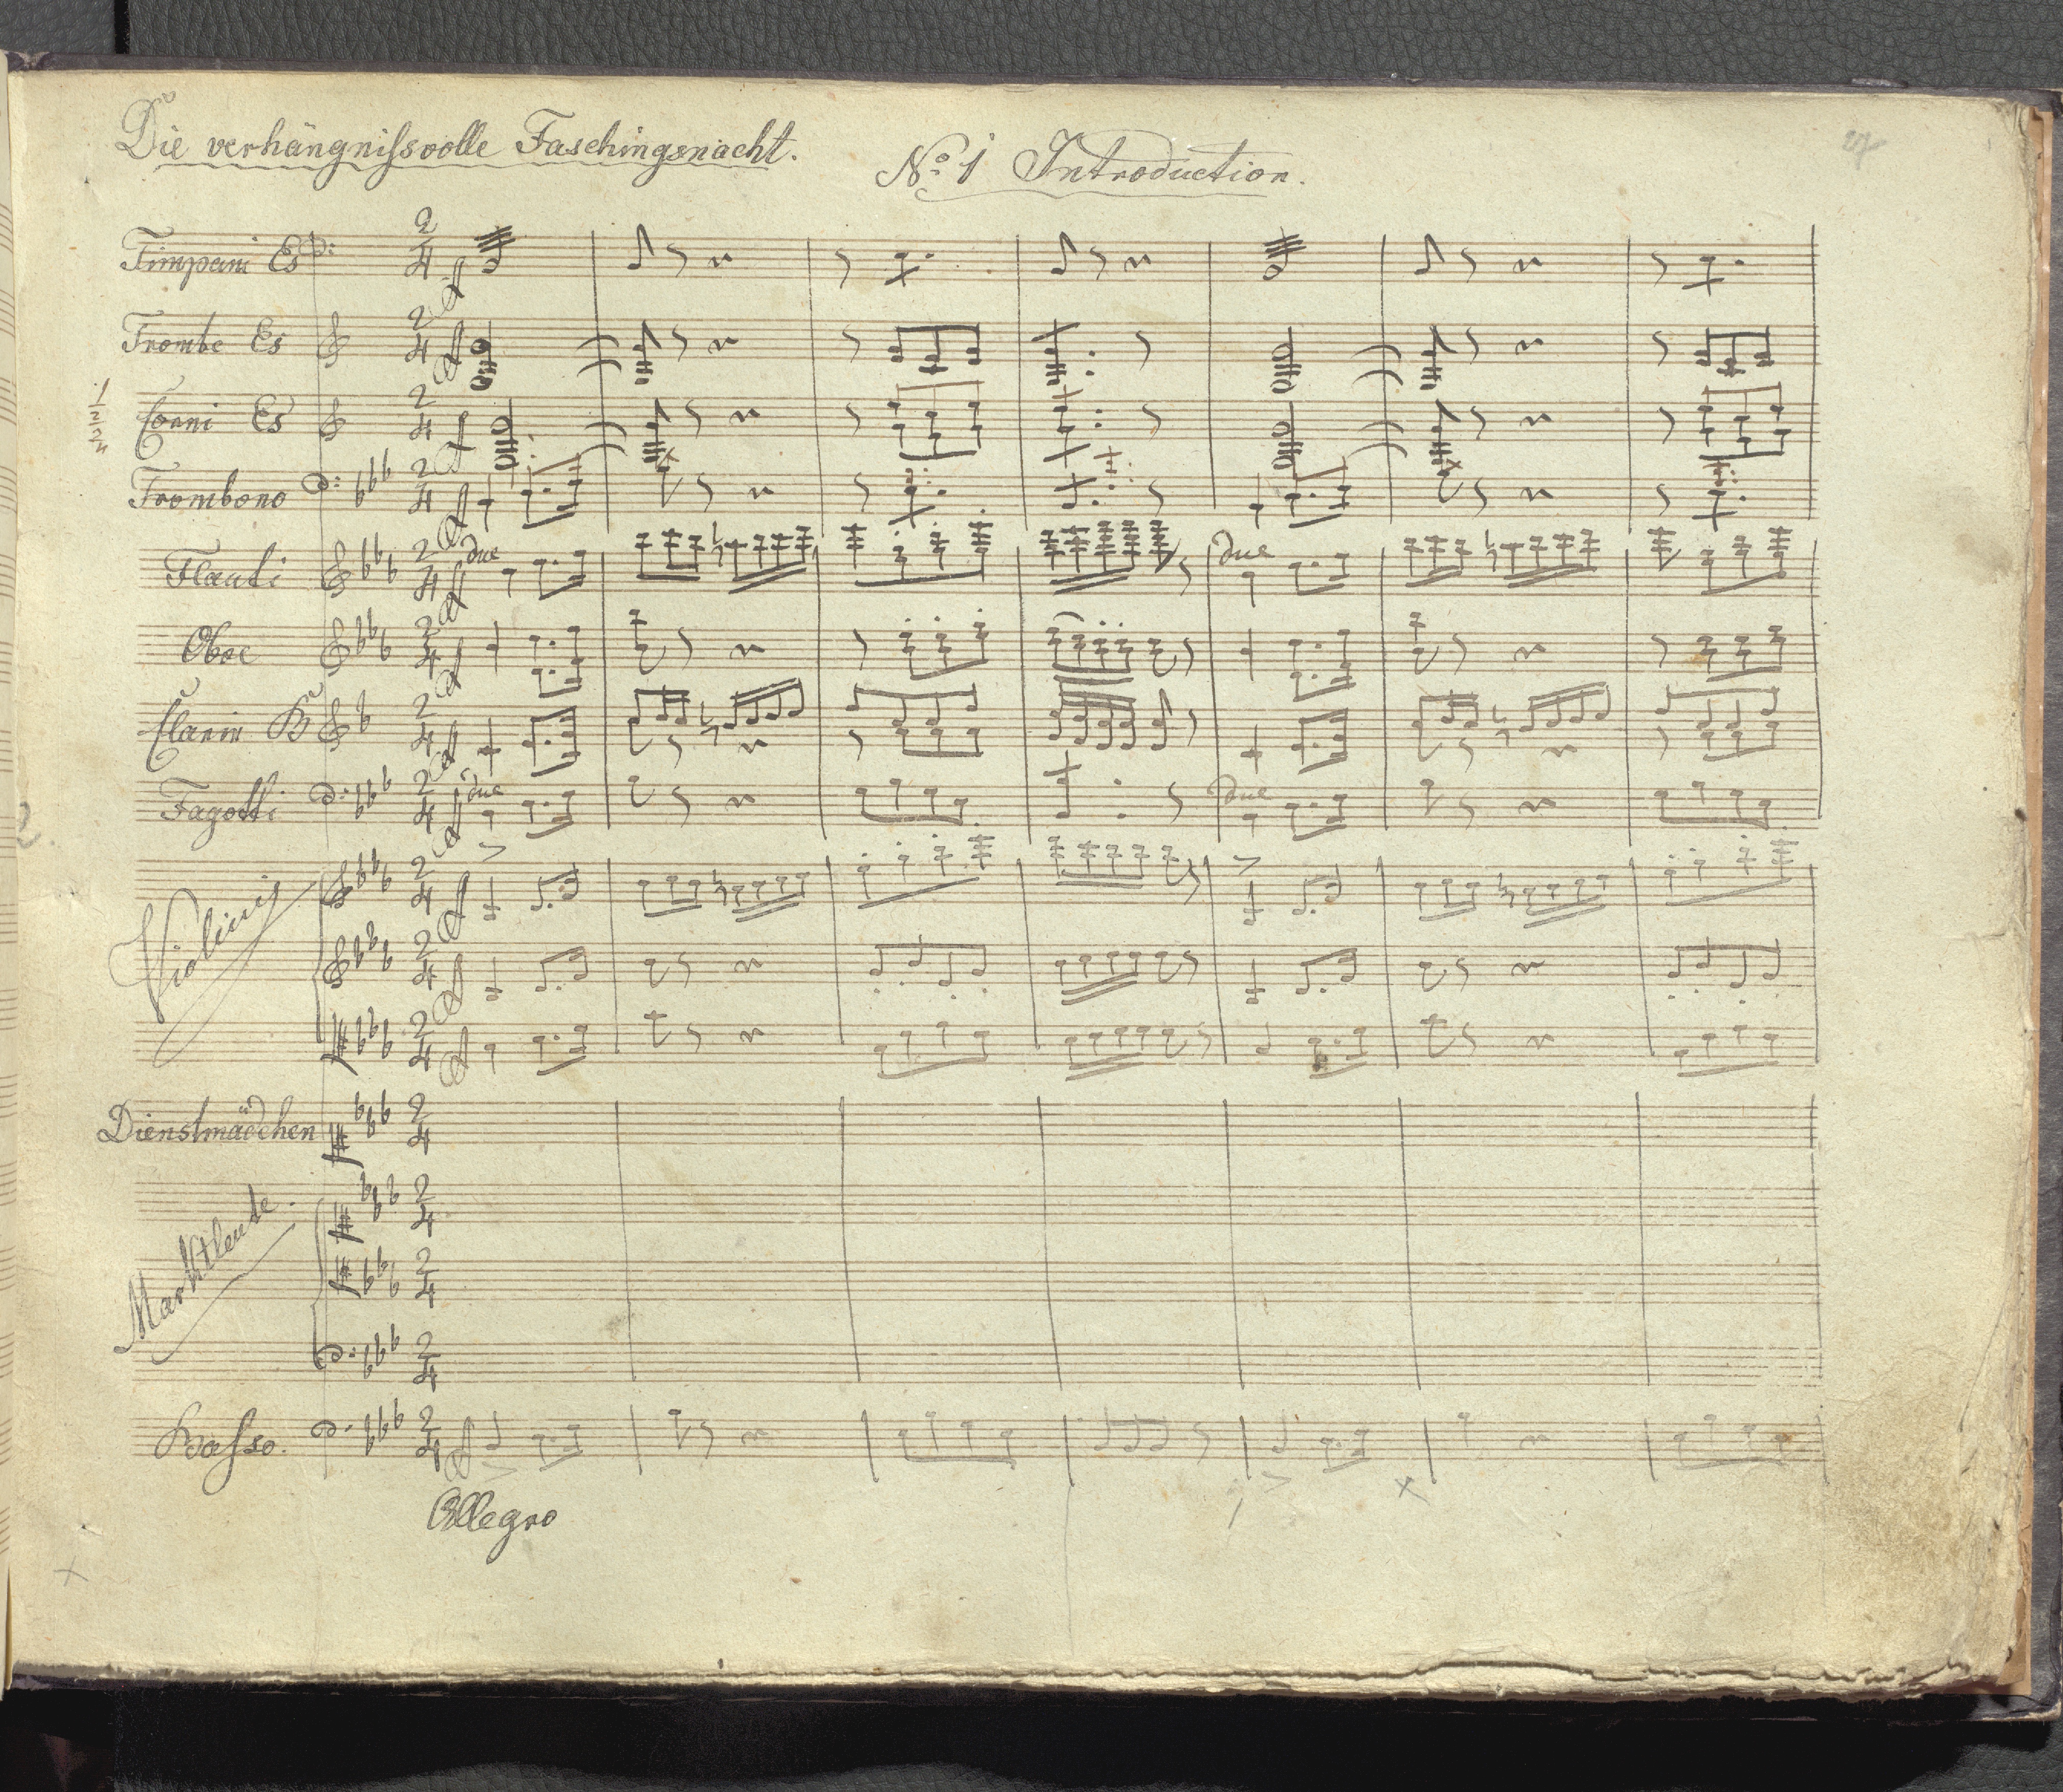 Die verhängnißvolle Faschingsnacht.
No. 1 Introduction.
Timpani Es
Trombe Es
Corni Es
Trombono
Flauti due due
Oboe
Clarin B
Fagotti due due
Violini
Dienstmädchen
Marktleute.
Basso.
Allegro